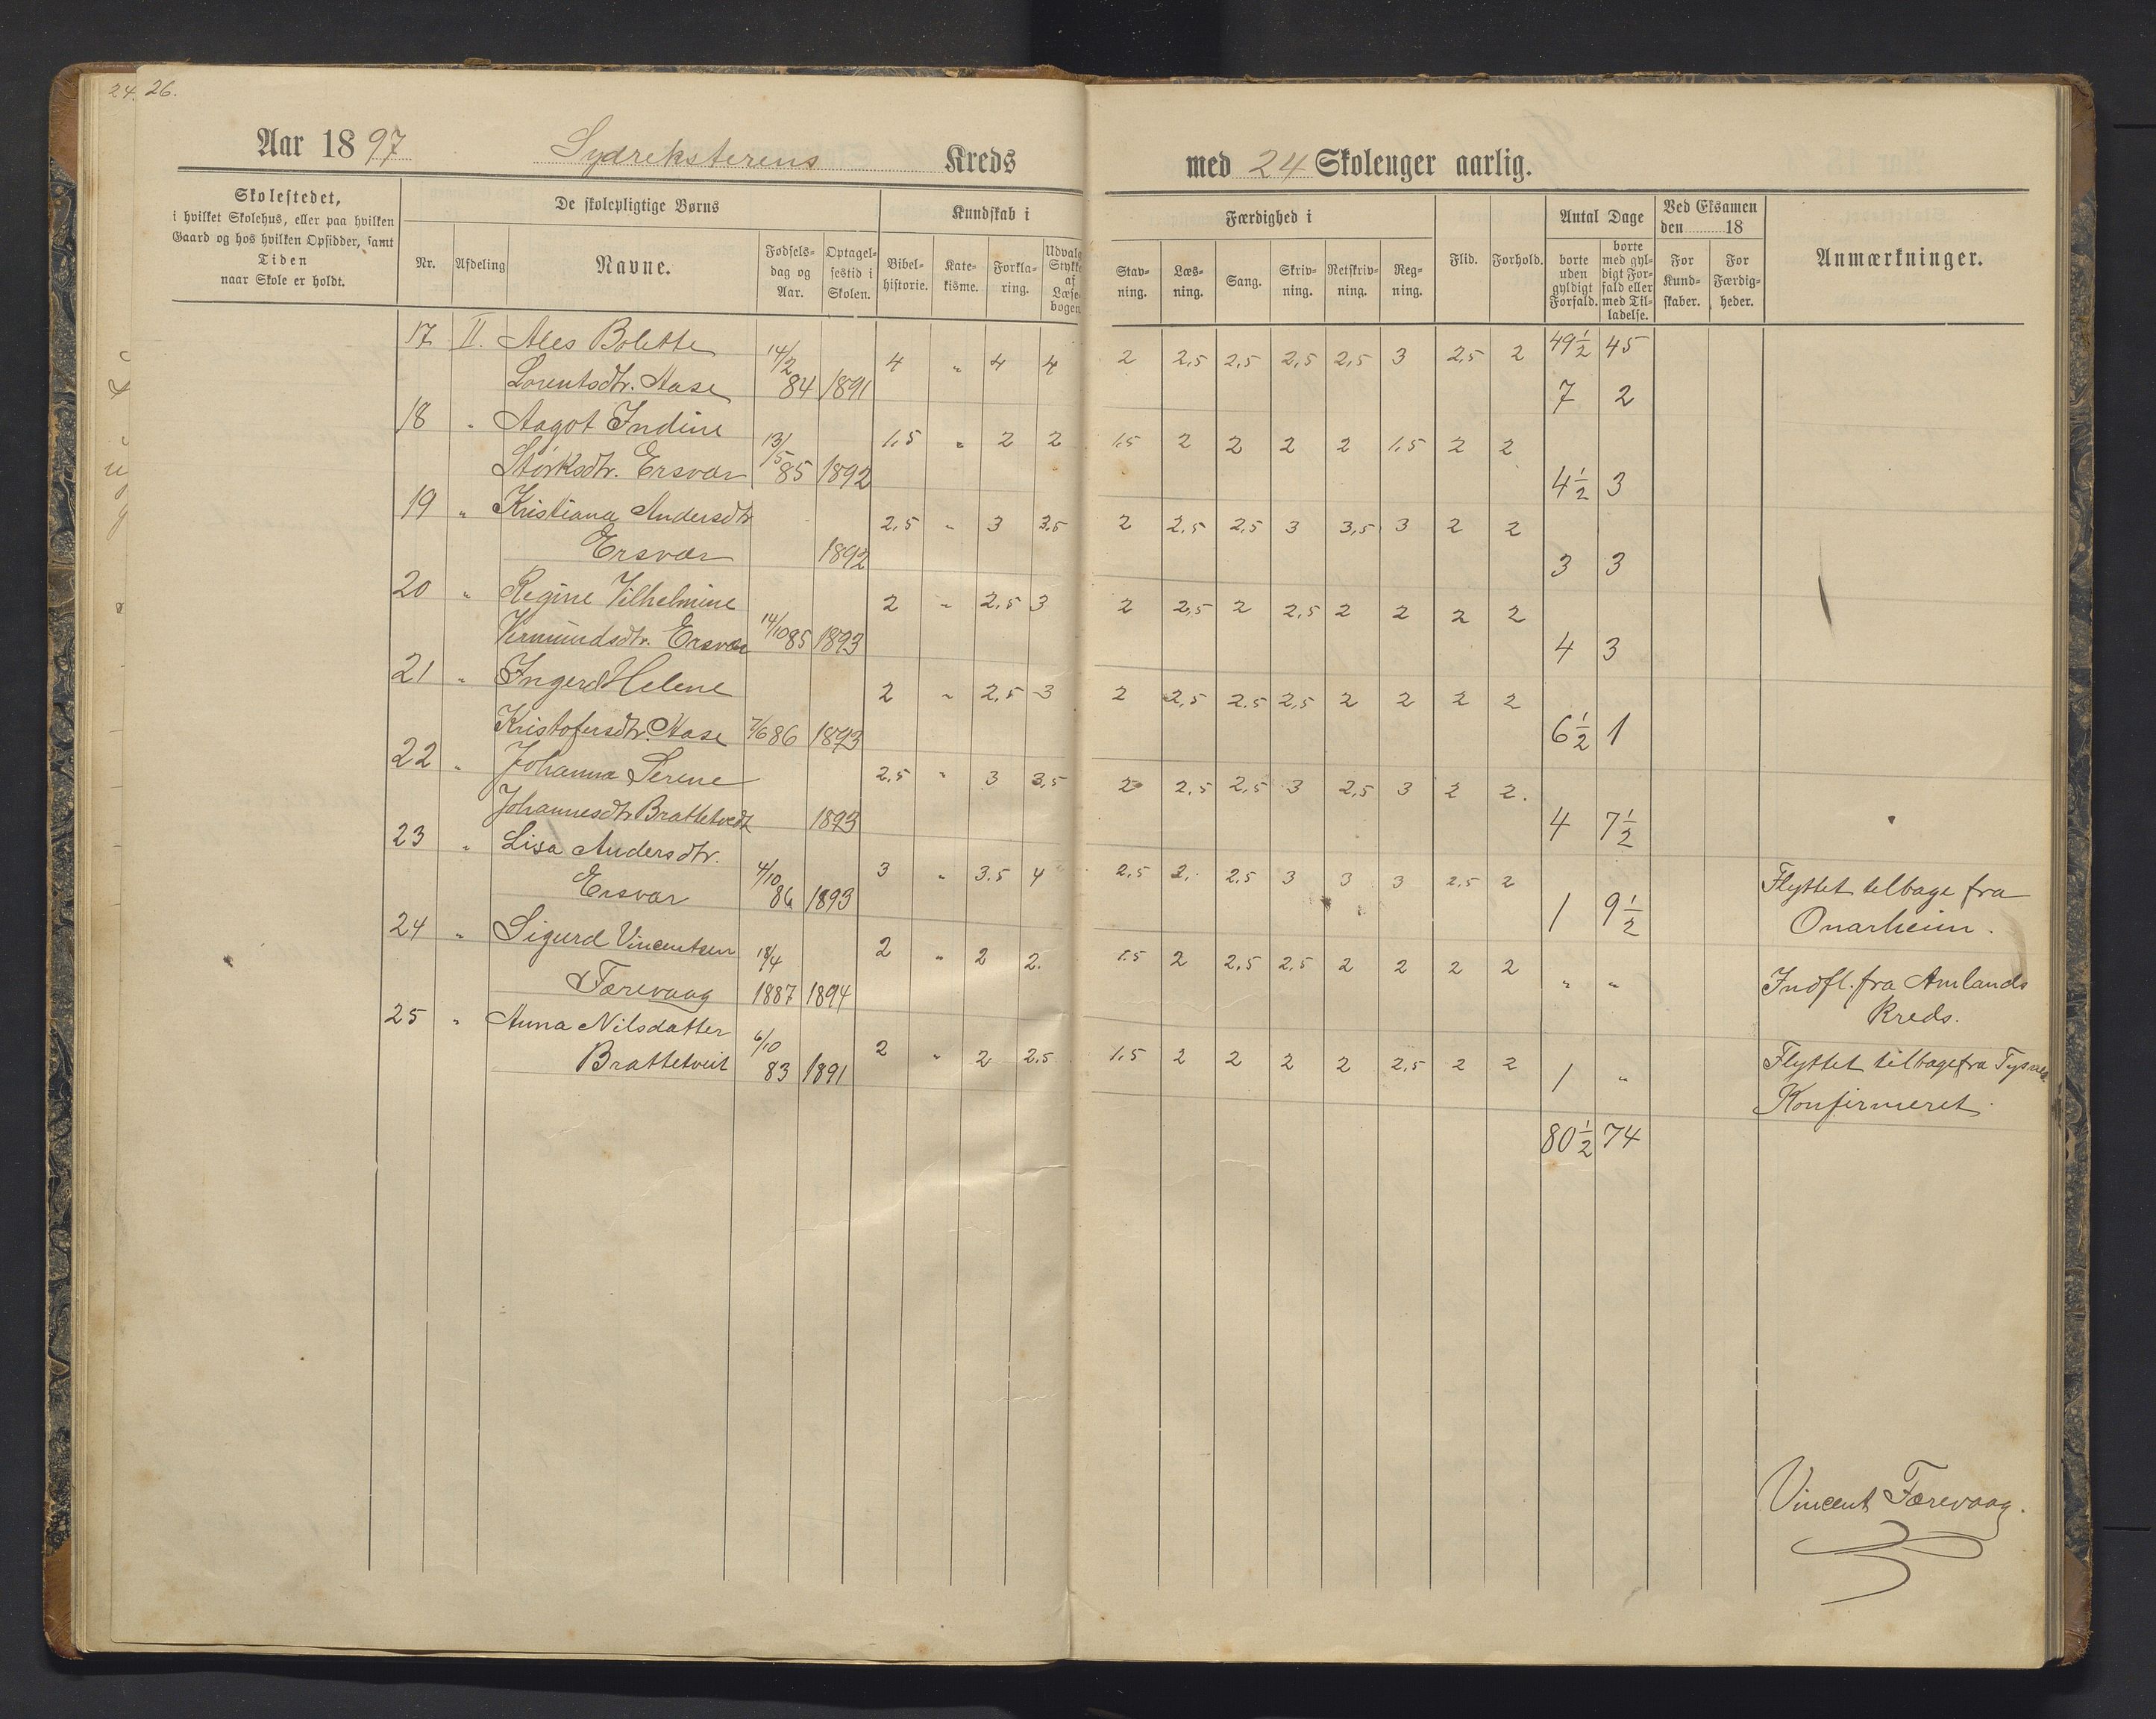 24. 26.
Aar 1897 Sydreksterens Kreds med 24 Skoleuger aarlig.
Skolestedet,
i hvilket Skolehus, eller paa hvilken
Gaard og hos hvilken Opsidder, samt
Tiden
naar Skole er holdt.
De skolepligtige Børns
Nr. Afdeling Navne. Fødsels-dag og Aar. Optagel-sestid i Skolen.
Kundskab i
Bibel-historie. Kate-kisme. Forkla-ring. Udvalgte Stykker af Læse-bogen
Færdighed i
Stav-ning. Læs-ning. Sang. Skriv-ning. Retskriv-ning. Reg-ning.
Flid. Forhold.
Antal Dage
borte uden gyldigt Forfald. borte med gyl-digt For-fald eller med Til-ladelse.
Ved Eksamen den 18
For Kund-skaber. For Færdig-heder.
Anmærkninger.
17 II. Ales Bolette 14/2 4 " 4 4 2 2,5 2,5 2,5 2,5 3 2,5 2 49½ 45
Lorentsdtr. Aase 84 1891 7 2
18 " Aagot Indine 13/5 1,5 " 2 2 1,5 2 2 2 2 1,5 2 2
Størksdtr. Ersvær 85 1892 4½ 3
19 " Kristiana Andersdtr 2,5 " 3 3,5 2 2,5 2,5 3 3,5 3 2 2
Ersvær 1892 3 3
20 " Regine Vilhelmine 2 " 2,5 3 2 2,5 2 2,5 2 2 2 2
Vermundsdtr. Ersvær 14/10 85 1893 4 3
21 " Ingerd Helene 2 " 2,5 3 2 2,5 2,5 2,5 2 2 2 2
Kristofersdtr. Aase 7/6 86 1893 6½ 1
22 " Johanna Serene 2,5 " 3 3,5 2 2,5 2,5 3 2,5 3 2 2.
Johannesdtr Brattetvedt 1893 4 7½
23 " Lisa Andersdtr. 4/10 3 " 3.5 4 2,5 2,. 2,5 3 3 3 2,5 2 Flyttet tilbage fra
Ersvær 86 1893 1 9½ Onarheim.
24 " Sigurd Vincentsen 18/4 2 " 2 2. 1.5 2 2,5 2,5 2 2 2 2
Færevaag 1887 1894 " " Indfl. fra Amlands
Kreds.
25 " Anna Nilsdatter 6/10 2 " 2 2,5 1,5 2 2 2 2 2,5 2 2 Flyttet tilbage fra Tysnes
Brattetveit 83 1891 1 " Konfirmeret.
80½ 74
Vincent Færevaag.